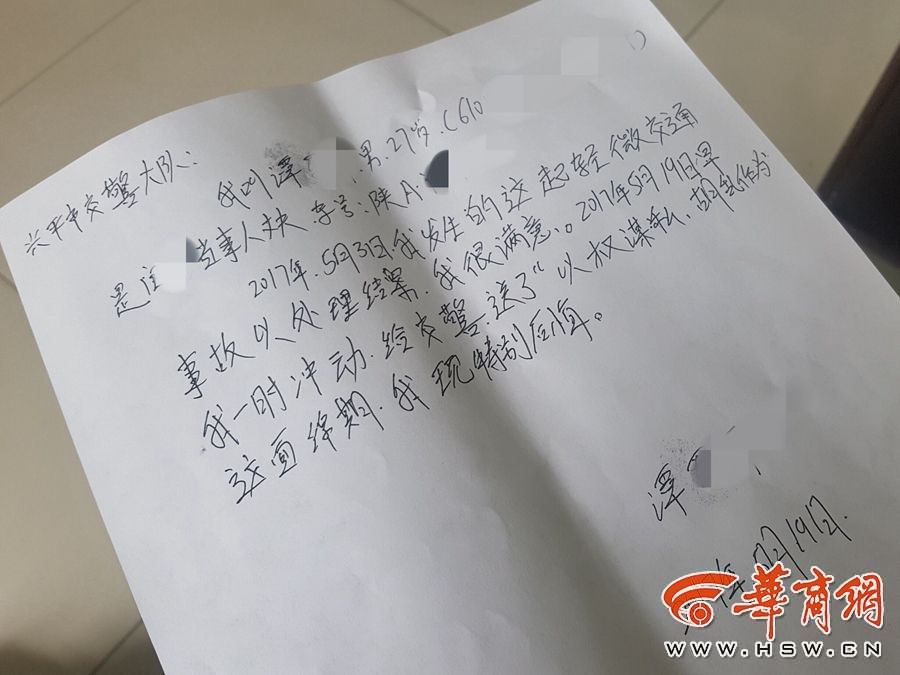 兴平市交警大队:
我叫潭 男.27岁.(610
1)
是 当事人 车号:陕A·
2017年.5月31日.我发生的这起轻微交通
事故以处理结果.我很满意。2017年5月19日早
我一时冲动.给交警送了“以权谋私、胡乱作为
这面绵期.我现特别后悔。
潭
年 月19日.
華商網
WWW.HSW.CN